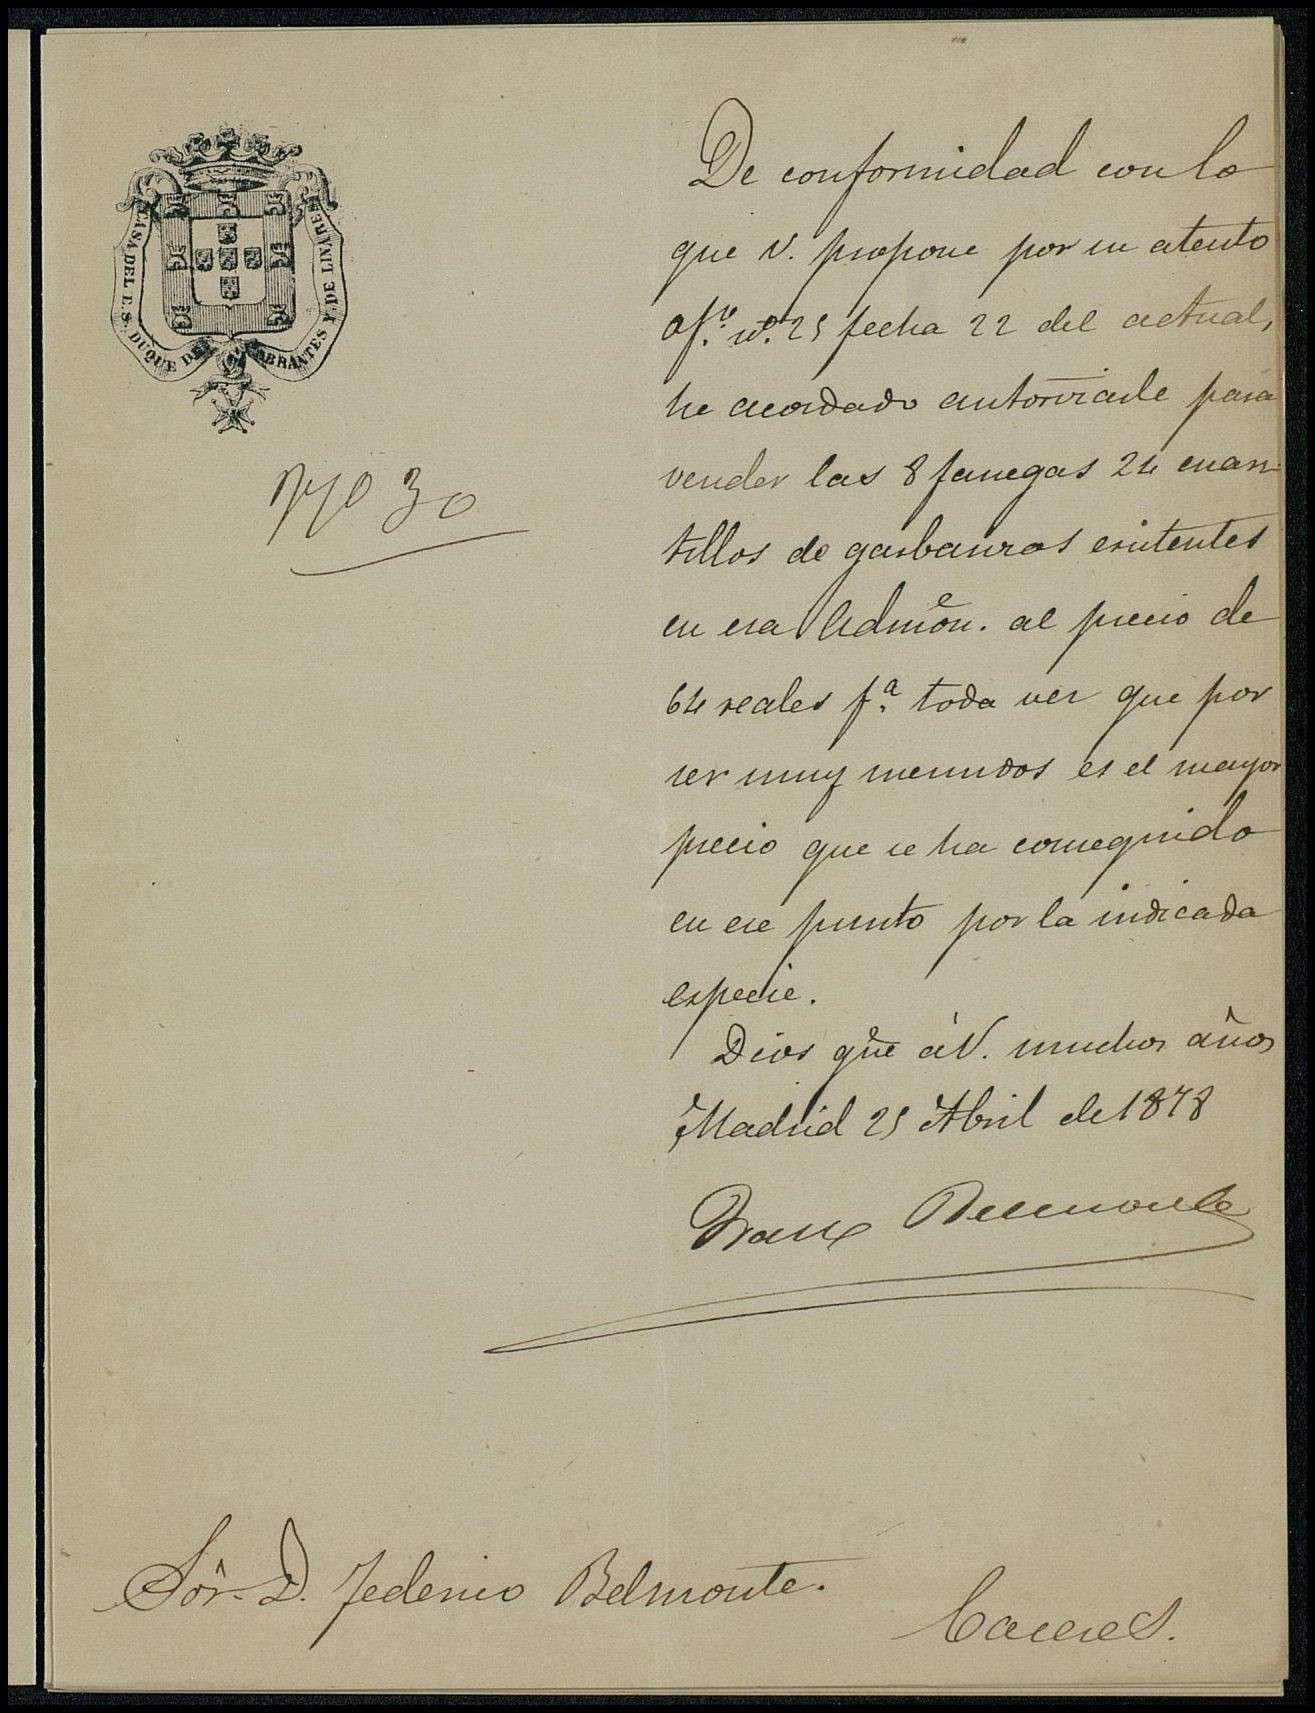 CASA DEL E. S. DUQUE DE ABRANTES Y DE LINARES
Nº 30
De conformidad con lo
que V. propone por su atento
of.º nº. 25 fecha 22 del actual,
he acordado autorizarle para
vender las 8 fanegas 24 cuar-
tillos de garbanzos existentes
en esa Admōn. al precio de
64 reales f.ª toda vez que por
ser muy menudos es el mayor
precio que se ha conseguido
en ese punto por la indicada
especie.
Dios gūe á V. muchos años
Madrid 25 Abril de 1878
Belmonte
Sôr. D. Federico Belmonte.
Caceres.